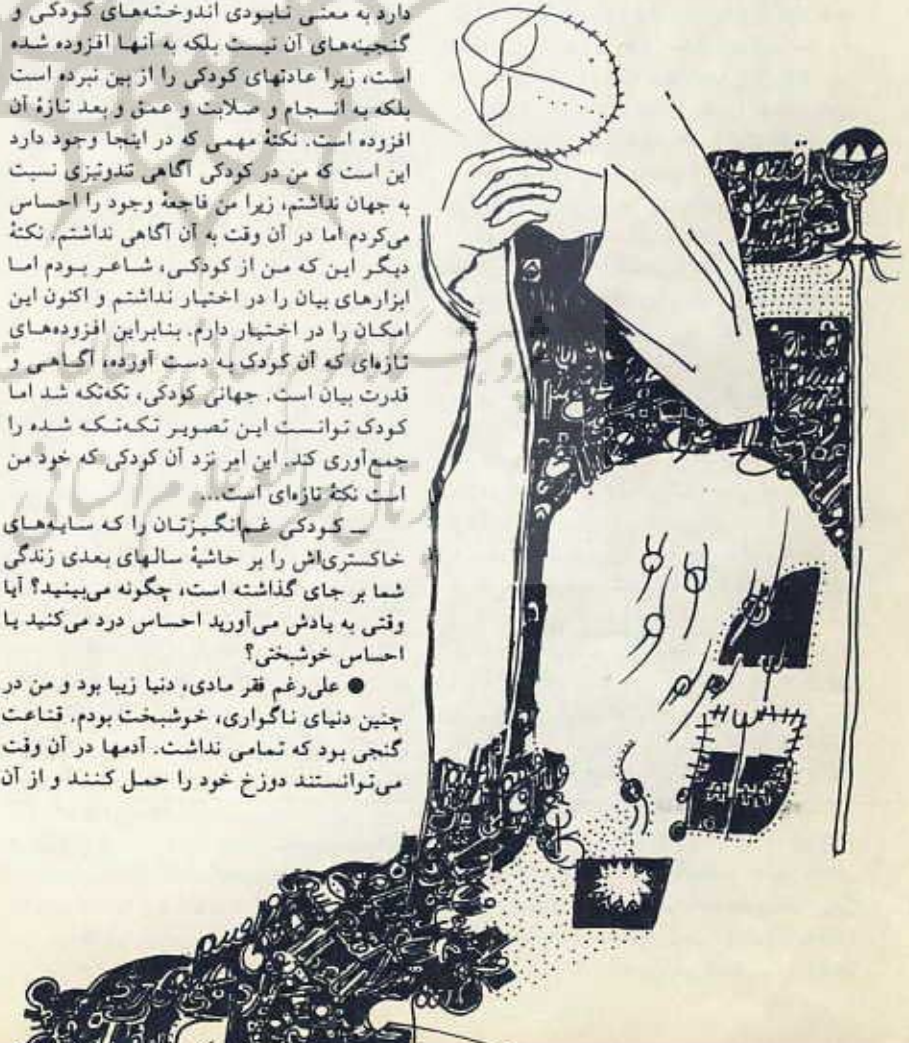 دارد به معنی نابودی اندوخته‌های کودکی و
گنجینه‌های آن نیست بلکه به آنها افزوده شده
است، زیرا عادتهای کودکی را از بین نبرده است
بلکه به انسجام و صلابت و عمق و بعد تازهٔ آن
افزوده است. نکتهٔ مهمی که در اینجا وجود دارد
این است که من در کودکی آگاهی تندوتیزی نسبت
به جهان نداشتم، زیرا من فاجعهٔ وجود را احساس
می‌کردم اما در آن وقت به آن آگاهی نداشتم. نکتهٔ
دیگر این که من از کودکی، شاعر بودم اما
ابزارهای بیان را در اختیار نداشتم و اکنون این
امکان را در اختیار دارم. بنابراین افزوده‌های
تازه‌ای که آن کودک به دست آورده، آگاهی و
قدرت بیان است. جهانی کودکی، تکه‌تکه شد اما
کودک توانست این تصویر تکه‌تکه شده را
جمع‌آوری کند. این امر نزد آن کودکی که خود من
است نکتهٔ تازه‌ای است...
ــ کودکی غم‌انگیزتان را که سایه‌های
خاکستری‌اش را بر حاشیهٔ سالهای بعدی زندگی
شما بر جای گذاشته است، چگونه می‌بینید؟ آیا
وقتی به یادش می‌آورید احساس درد می‌کنید یا
احساس خوشبختی؟
● علی‌رغم فقر مادی، دنیا زیبا بود و من در
چنین دنیای ناگواری، خوشبخت بودم. قناعت
گنجی بود که تمامی نداشت. آدمها در آن وقت
می‌توانستند دوزخ خود را حمل کنند و از آن